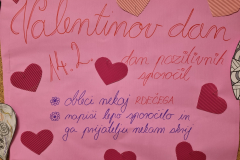 Valentinov dan
14.2.
dan pozitivnih
sporočil
obleci nekaj RDEČEGA
napiši lepo sporočilo in
ga prijatelju nekam skrij